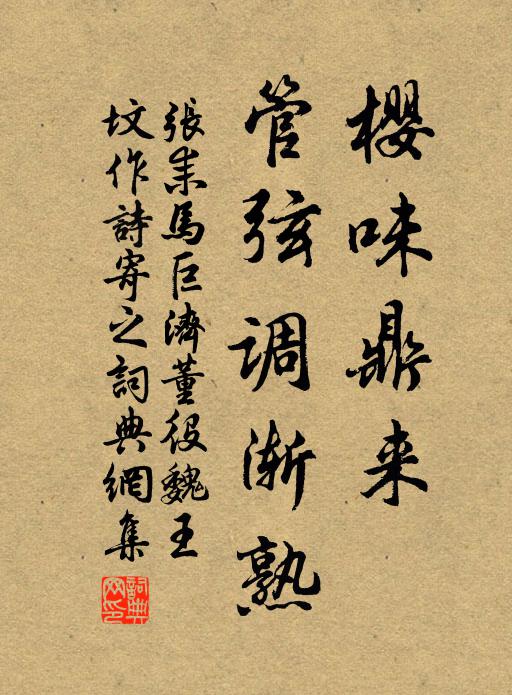 櫻味鼎来
管弦调渐熟
張耒馬巨濟董役魏王
坟作詩寄之詞典網集
詞典
网印